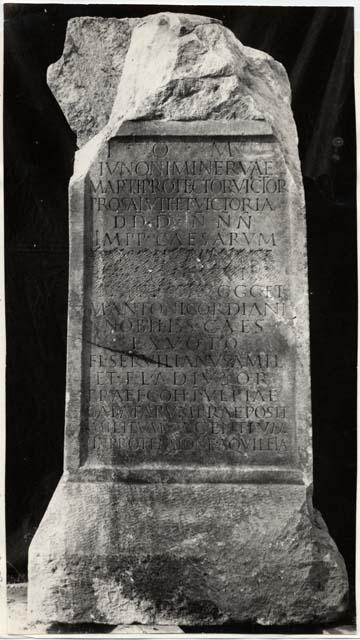 I O M
IVNONI MINERVAE
MARTI PROTECTORI VICTOR
PRO SALVTE ET VICTORIA
D D D N N N
IMPP CAESARVM
GGG ET
M ANTONI GORDIANI
NOBILISS CAES
EX VOTO
FL SERVILIANVS A MIL
ET FL ADIVTOR
PRAEFF COH I VLPIAE
GALATARVM PRAEPOSIT
MILITVM AGENTIVM
IN PROTENSIONE AQVILEIA